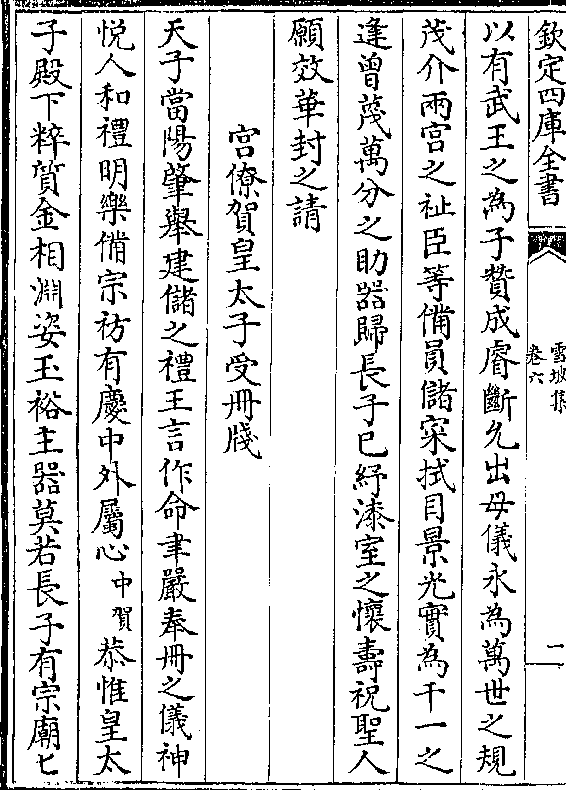 欽定四庫全書
雪坡集
卷六
二
以有武王之為子賛成睿斷允出母儀永為萬世之規
茂介兩宫之祉臣等備員儲寀拭目景光實為千一之
逢曽蔑萬分之助器歸長子已紓漆室之懷壽祝聖人
願效華封之請
宫僚賀皇太子受冊牋
天子當陽肇舉建儲之禮王言作命聿嚴奉冊之儀神
悦人和禮明樂備宗祊有慶中外屬心中賀恭惟皇太
子殿下粹質金相淵姿玉裕主器莫若長子有宗廟匕